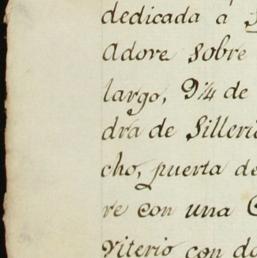 dedicada à
Adore sobre
largo, 9¼ de
dra de Silleri
cho, puerta de
re con una C
viterio con do